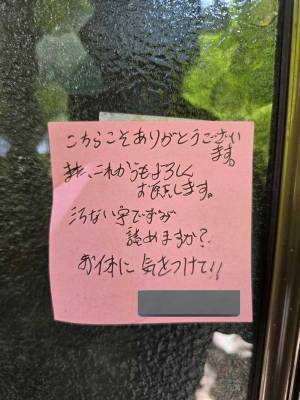 こちらこそありがとうござい
ます。
また、これからもよろしく
お願します。
汚ない字ですが
読めますか?
お体に気をつけて!!